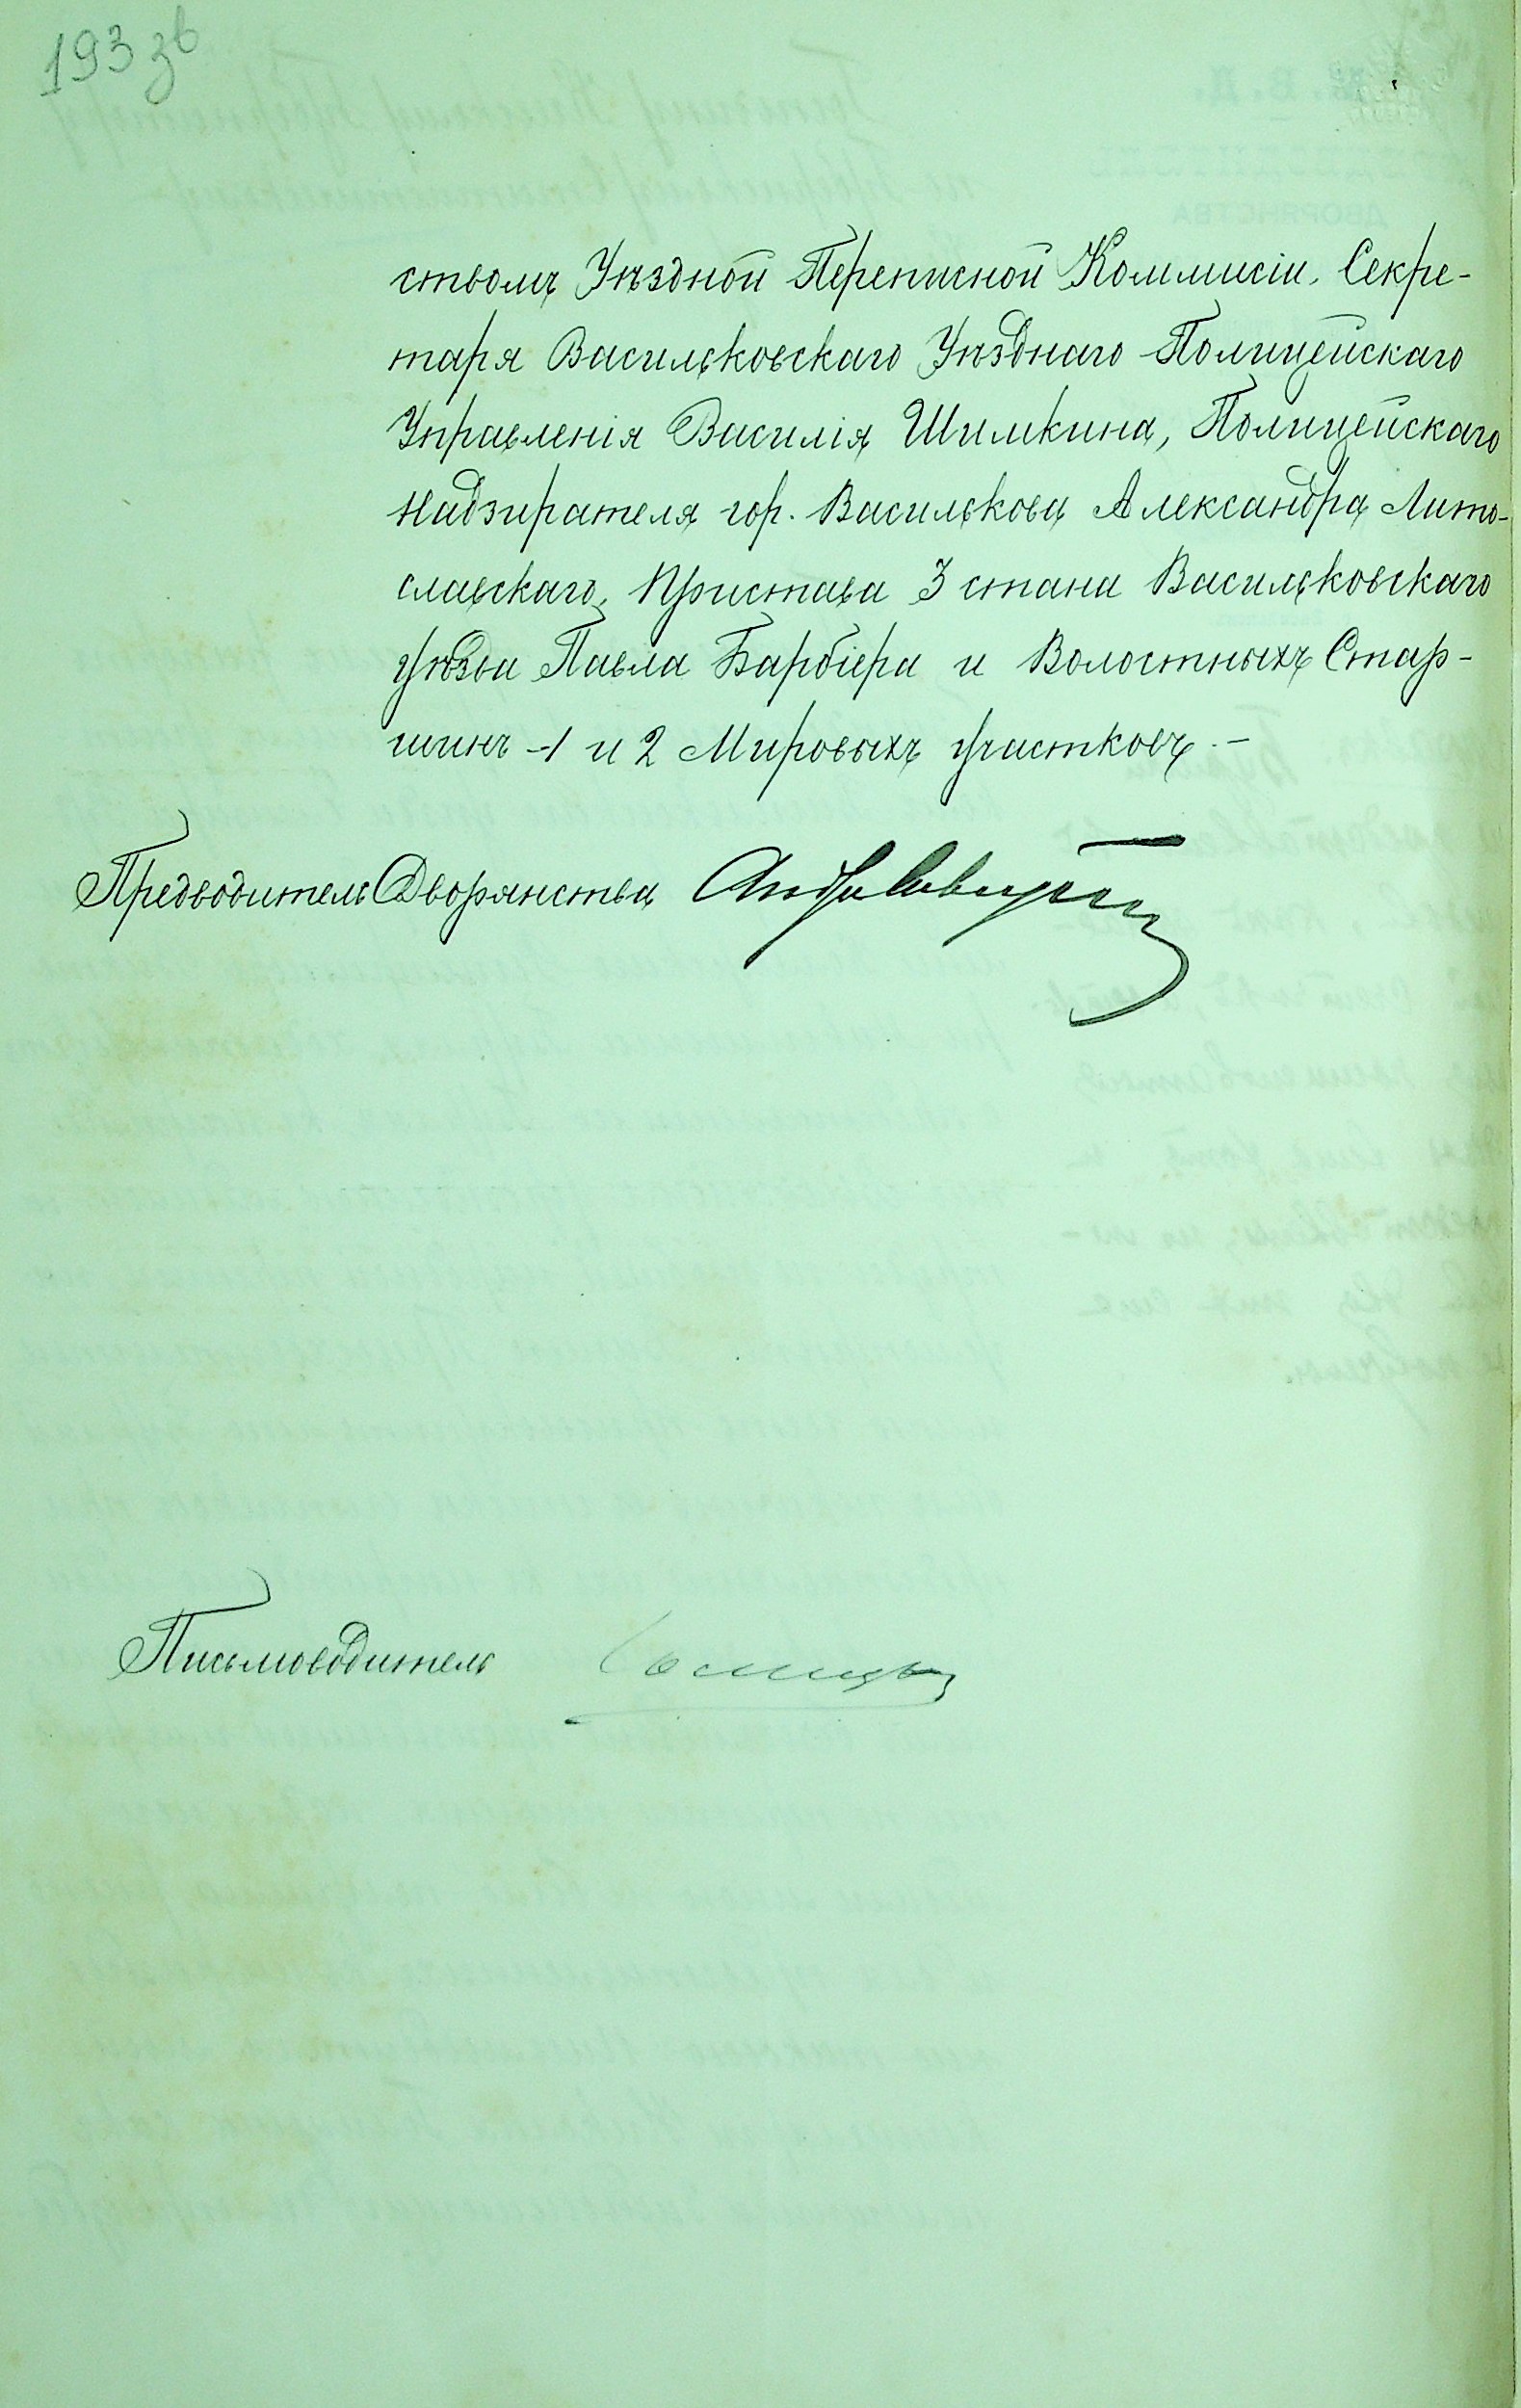 193 зв
ствомъ Уѣздной Переписной Коммисіи, Секре-
таря Васильковскаго Уѣзднаго Полицейскаго
Управленія Василія Шимкина, Полицейскаго
Надзирателя гор. Василькова Александра Лито-
славскаго, Пристава 3 стана Васильковскаго
уѣзда Павла Барбіера и Волостныхъ Стар-
шинъ 1 и 2 Мировыхъ участковъ.-
Предводитель Дворянства
Письмоводитель